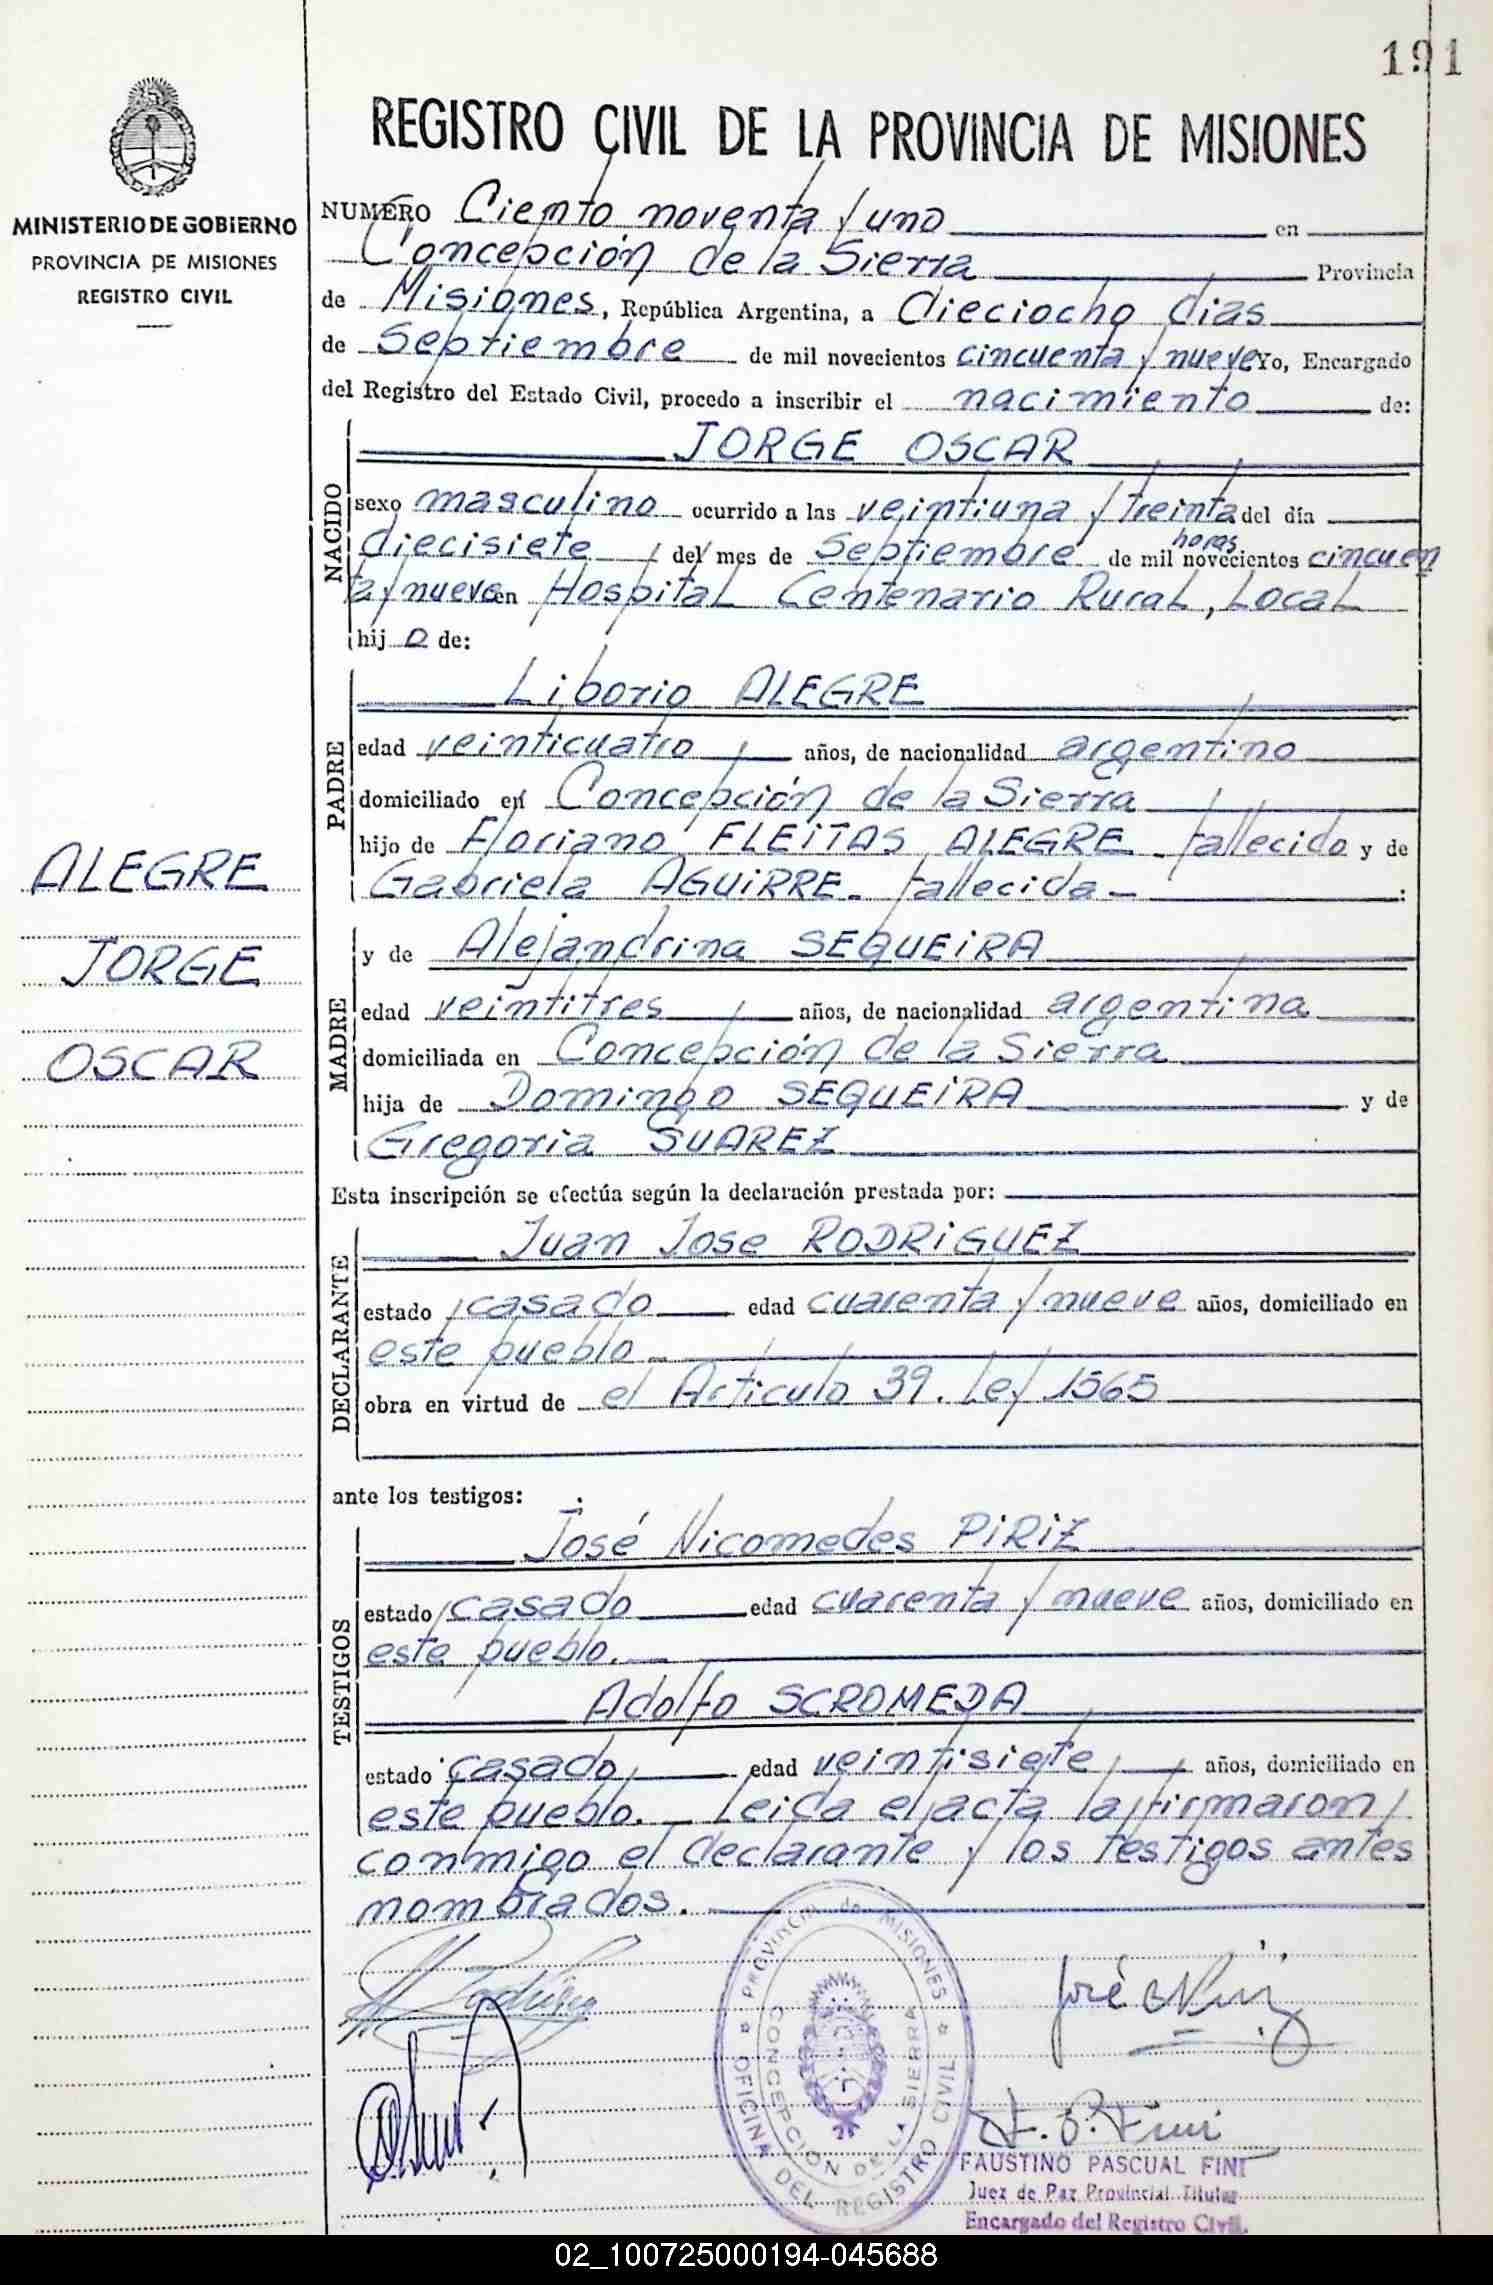 191
REGISTRO CIVIL DE LA PROVINCIA DE MISIONES
MINISTERIO DE GOBIERNO
PROVINCIA DE MISIONES
REGISTRO CIVIL
NUMERO Ciento noventa y uno en
Concepción de la Sierra Provincia
de Misiones, República Argentina, a dieciocho dias
de Septiembre de mil novecientos cincuenta y nueve Yo, Encargado
del Registro del Estado Civil, procedo a inscribir el nacimiento de:
NACIDO
JORGE OSCAR
sexo masculino ocurrido a las veintiuna y treinta del día
horas
diecisiete del mes de Septiembre de mil novecientos cincuen
ta y nueve en Hospital Centenario Rural, Local
hijo de:
PADRE
Liborio ALEGRE
edad veinticuatro años, de nacionalidad argentino
domiciliado en Concepción de la Sierra
hijo de Floriano FLEiTAS ALEGRE - fallecido y de
Gabriela AGUiRRE - fallecida - :
ALEGRE
JORGE
OSCAR
MADRE
y de Alejandrina SEQUEiRA
edad veintitres años, de nacionalidad argentina
domiciliada en Concepción de la Sierra
hija de Domingo SEQUEiRA y de
Gregoria SUAREZ
Esta inscripción se efectúa según la declaración prestada por:
DECLARANTE
Juan Jose RODRiGUEZ
estado casado edad cuarenta y nueve años, domiciliado en
este pueblo
obra en virtud de el Articulo 39. Ley 1565
ante los testigos:
TESTIGOS
José Nicomedes PiRiZ
estado casado edad cuarenta y nueve años, domiciliado en
este pueblo.
Adolfo SCROMEDA
estado casado edad veintisiete años, domiciliado en
este pueblo. - Leida el acta la firmaron
conmigo el declarante y los testigos antes
nombrados.
PROVINCIA de MISIONES
OFICINA DEL REGISTRO CIVIL
CONCEPCION DE LA SIERRA
José N Piriz
F. P. Fini
FAUSTINO PASCUAL FINI
Juez de Paz Provincial Titular
Encargado del Registro Civil.
02_100725000194-045688